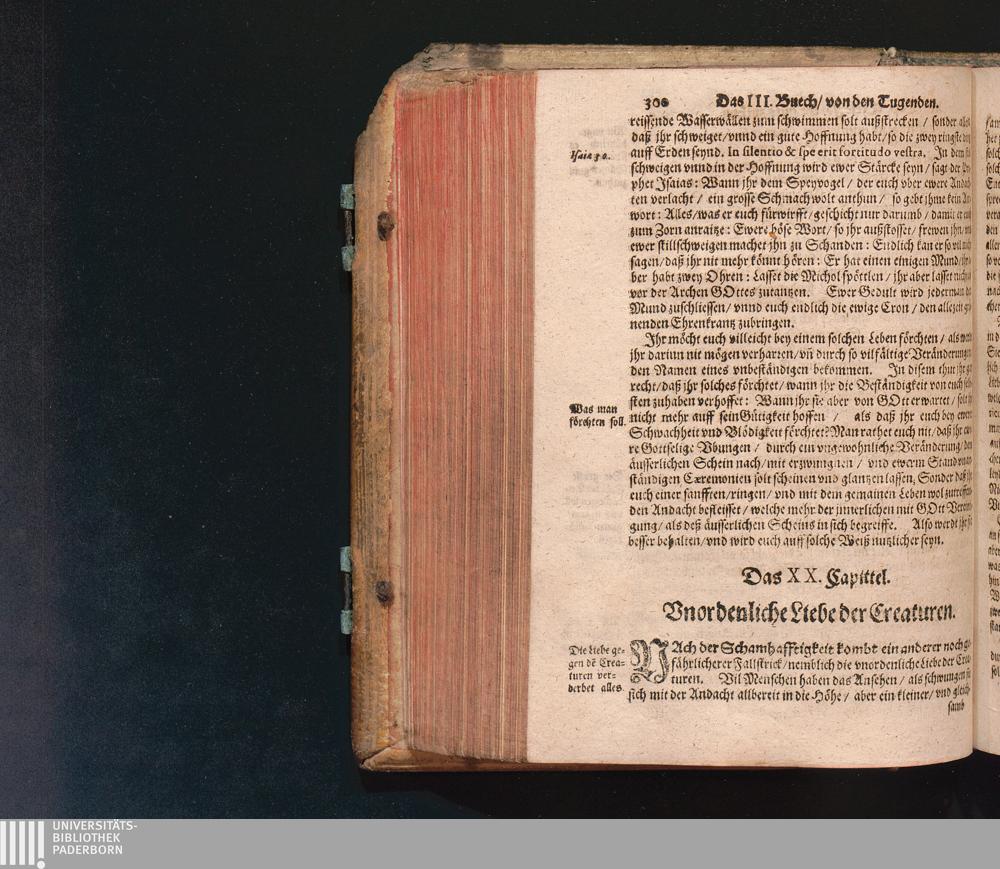 300 Das III. Buech/ von den Tugenden.
reissende Wasserwällen zum schwimmen solt außstrecken / sonder als
daß jhr schweiget/vnnd ein gute Hoffnung habt/so die zwey
Isaiæ 30.
auff Erden seynd. In silentio & spe erit fortitudo vestra. In dem
schweigen vnnd in der Hoffnung wird ewer Stärcke seyn/ sagt der
phet Isaias: Wann jhr dem Speyvogel/ der euch vber ewere
ten verlacht / ein grosse Schmach wolt anthun / so gebt jhme kein
wort: Alles/was er euch fürwirfft/geschicht nur darumb/ damit er
zum Zorn anraitze: Ewere böse Wort/ so jhr außstosset/ frewen jhn/
ewer stillschweigen machet jhn zu Schanden: Endlich kan er so vil
sagen/daß jhr nit mehr könnt hören: Er hat einen einigen Mund/
ber habt zwey Ohren: Lasset die Michol spöttlen/ jhr aber lasset
vor der Archen GOttes zutantzen. Ewer Gedult wird jederman
Mund zuschliessen/ vnnd euch endlich die ewige Cron / den allezeit
nenden Ehrenkrantz zubringen.
Ihr möcht euch villeicht bey einem solchen Leben förchten/ als
jhr darinn nit mögen verharren/vñ durch so vilfältige Veränderungen
den Namen eines vnbeständigen bekommen. In disem thut jhr
recht/daß jhr solches förchtet/wann jhr die Beständigkeit von euch
sten zuhaben verhoffet: Wann jhr sie aber von GOtt erwartet/ solt
Was man
förchten soll.
nicht mehr auff sein Gütigkeit hoffen / als daß jhr euch bey ewerer
Schwachheit vnd Blödigkeit förchtet? Man rathet euch nit/daß jhr
re Gottselige Vbungen / durch ein vngewohnliche Veränderung/
äusserlichen Schein nach/mit erzwungnen / vnd ewerm Stand
ständigen Cæremonien solt scheinen vnd glantzen lassen, Sonder daß
euch einer sanfften/ringen/ vnd mit dem gemainen Leben wol
den Andacht befleisset/ welche mehr der jnnerlichen mit GOtt
gung/ als deß äusserlichen Scheins in sich begreiffe. Also werdt jhr
besser behalten/vnd wird euch auff solche Weiß nutzlicher seyn.
Das XX. Capittel.
Vnordenliche Liebe der Creaturen.
Die Liebe ge-
gen dẽ Crea-
turen ver-
derbet alles.
NAch der Schamhafftigkeit kombt ein anderer noch
fährlicherer Fallstrick/ nemblich die vnordenliche Liebe der
turen. Vil Menschen haben das Ansehen / als schwungen
sich mit der Andacht allbereit in die Höhe/ aber ein kleiner/ vnd gleich-
samb
UNIVERSITÄTS-
BIBLIOTHEK
PADERBORN